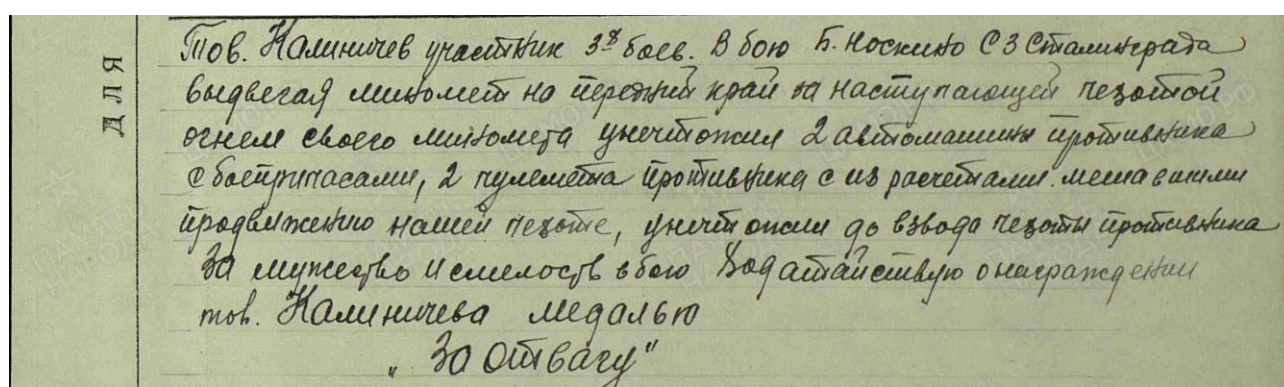 ДЛЯ
Тов. Калиничев участник 3х боев. В бою Б. Носкино СЗ Сталинграда
выдвегая миномет на передний край за наступающей пехотой
огнем своего миномета уничтожил 2 автомашины противника
с боеприпасами, 2 пулемета противника с их расчетами. мешавшими
продвижению нашей пехоте, уничтожил до взвода пехоты противника
За мужество и смелость в бою Ходатайствую о награждении
тов. Калиничева медалью
„За отвагу"